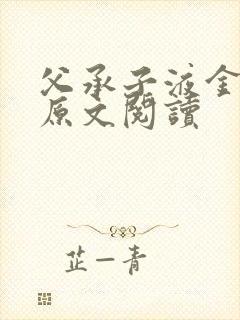 父承子液金
原文閱讀
芷一青